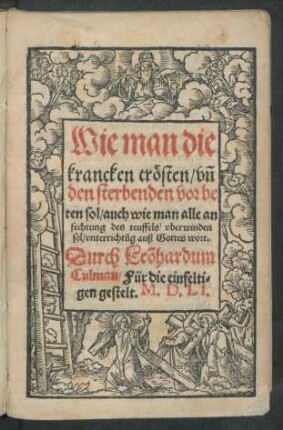 Wie man die
krancken trösten/ vñ
den sterbenden vor be
ten sol/ auch wie man alle an
fechtung des teuffels/ vberwinden
sol/ vnterrichtũg auß Gottes wort.
Durch Leõhardum
Culman/ Für die einfelti-
gen gestelt. M. D. LI.